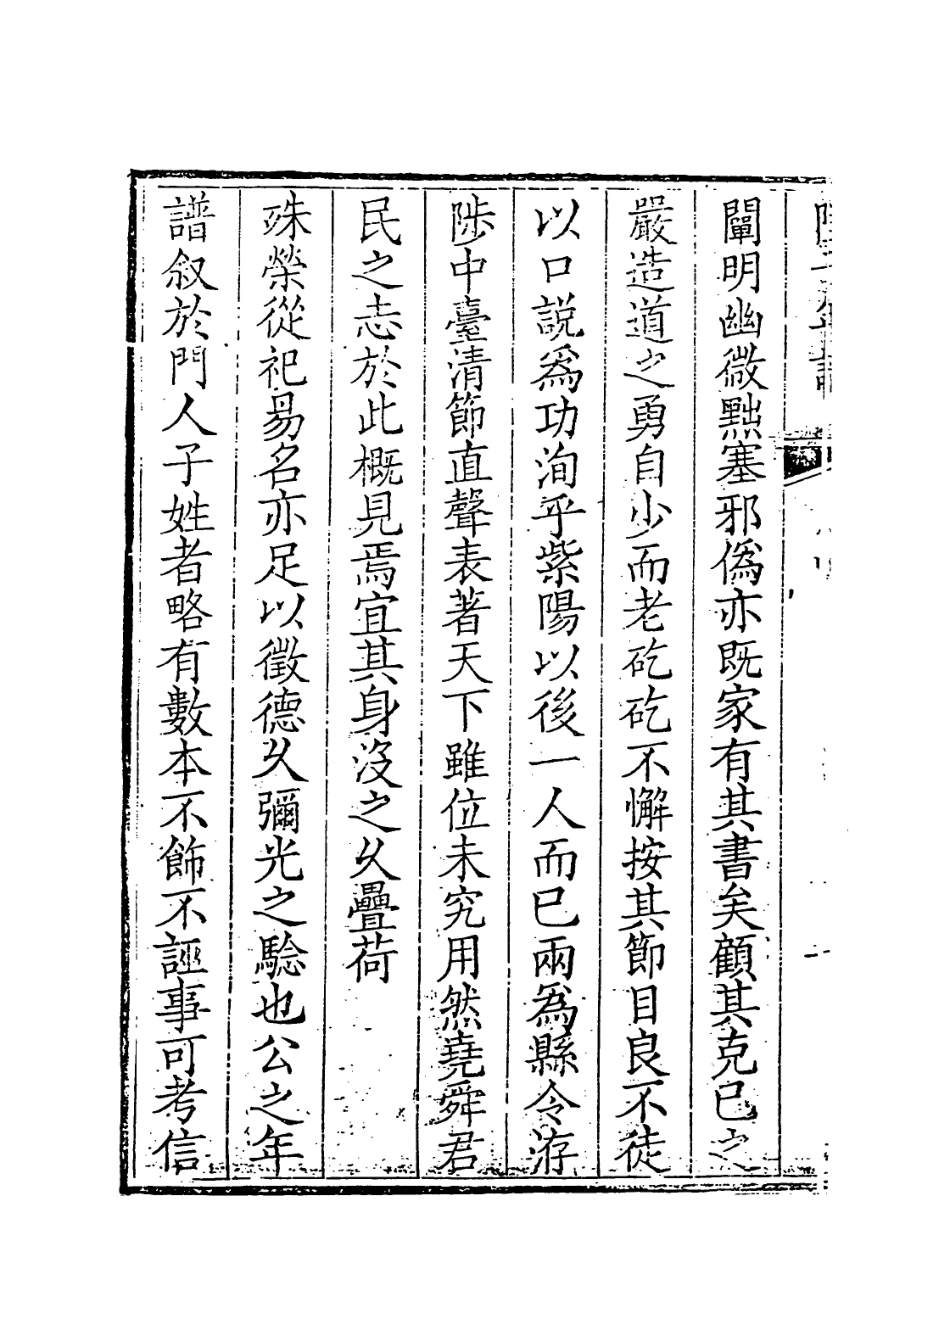 闡明幽微黜塞邪僞亦既家有其書矣顧其克已之
嚴造道之勇自少而老矻矻不懈按其節目良不徒
以口說爲功洵乎紫陽以後一人而已兩爲縣令洊
陟中臺清節直聲表著天下雖位未究用然堯舜君
民之志於此概見焉宜其身沒之乆疊荷
殊榮從祀易名亦足以徵德乆彌光之驗也公之年
譜叙於門人子姓者略有數本不飾不誣事可考信